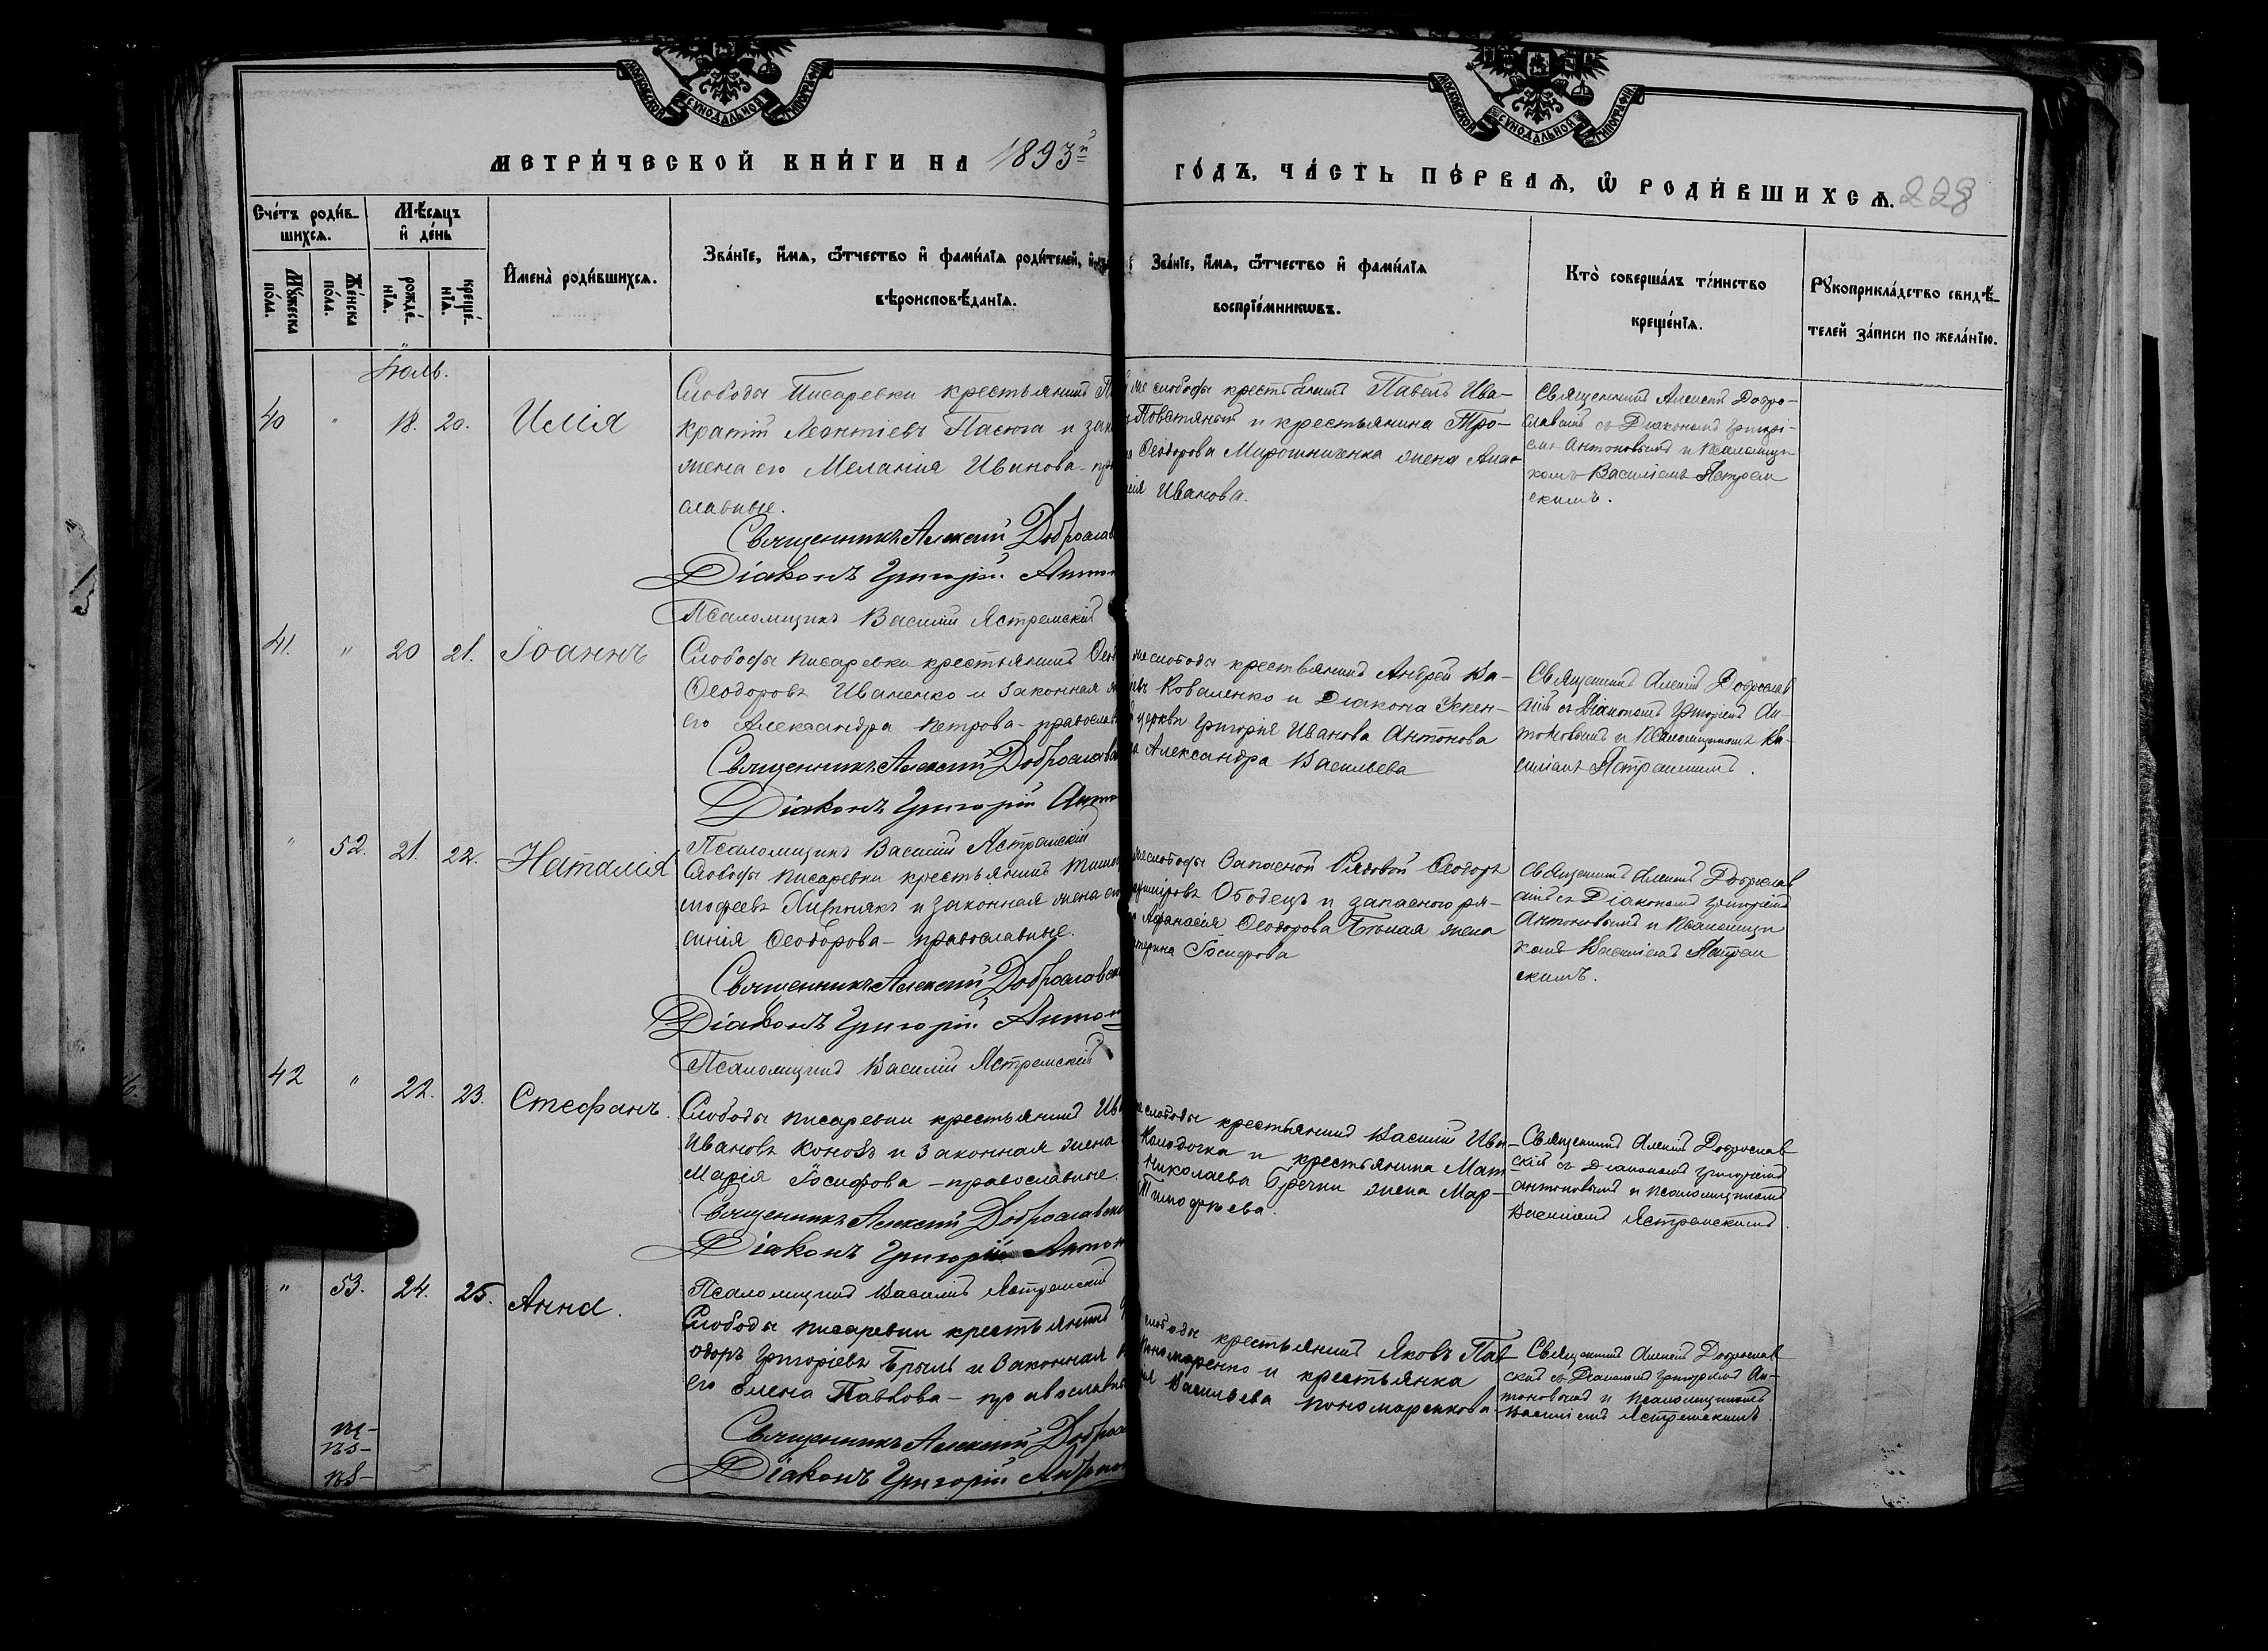 МОСКОВСКОЙ СУНОДАЛЬНОЙ ТИПОГРАФІИ
МОСКОВСКОЙ СУНОДАЛЬНОЙ ТИПОГРАФІИ
МЕТРИ́ЧЕСКОЙ КНИ́ГИ НА 1893й
ГО́ДЪ, ЧА́СТЬ ПЕ́РВАѦ, Ѿ РОДИ́ВШИХСѦ. 228
Сче́тъ роди́в-
шихсѧ.
Мѣ́сѧцъ
и҆ де́нь
Мꙋ́жеска по́ла.
Же́нска по́ла.
рожде́-нїѧ.
креще́-нїѧ.
И҆мена̀ роди́вшихсѧ.
Зва́нїе, и҆́мѧ, ѻ҆́тчество и҆ фами́лїѧ роди́телей, и҆
вѣроисповѣ́данїѧ.
Зва́нїе, и҆́мѧ, ѻ҆́тчество и҆ фами́лїѧ
воспрїе́мникѡвъ.
Кто̀ соверша́лъ та́инство
креще́нїѧ.
Рꙋкоприкла́дство свидѣ́-
телей за́писи по жела́нїю.
Іюль.
40 " 18. 20. Илія
Слободы Писаревки крестьянинъ
кратій Леонтіевъ Пасюга и
жена его Меланія Иванова
славные.
Священникъ Алексій Доброслав
Діаконъ Григорій Антон
Псаломщикъ Василій Ястремскій
же слободы крестьянинъ Павелъ Ива-
Повстяный и крестьянина Тро-
Ѳеодорова Мирошниченка жена Анас
сія Иванова.
Священникъ Алексій Добро-
славскій съ Діакономъ Григорі-
емъ Антоновымъ и Псаломщи
комъ Василіемъ Ястрем
скимъ.
41. " 20 21. Іоаннъ
Слободы Писаревки крестьянинъ Ѳеод
Ѳеодоровъ Иваненко и законная
его Александра Петрова - православ
Священникъ Алексій Доброслав
Діаконъ Григорій Анто
Псаломщикъ Василій Ястремскій
же слободы крестьянинъ Андрей Ва-
Коваленко и Діакона Успен-
церкви Григорія Иванова Антонова
Александра Васильева
Священникъ Алексій Доброслав
скій съ Діакономъ Григоріемъ Ан-
тоновымъ и Псаломщикомъ Ва-
силіемъ Ястремскимъ.
" 52. 21. 22. Наталія
Слободы Писаревки крестьянинъ Тимо
моѳеевъ и законная жена его
Ѳеодорова - православные.
Священникъ Алексій Доброславск
Діаконъ Григорій Антон
Псаломщикъ Василій Ястремскій
же слободы Запасной Рядовой Ѳеодоръ
Ободецъ и запаснаго ря-
Аѳанасія Ѳеодорова Бѣлая жена
терина Іосифова
Священникъ Алексій Доброслав
скій съ Діакономъ Григоріемъ
Антоновымъ и Псаломщи
комъ Василіемъ Ястрем
скимъ.
42 " 22. 23. Стефанъ.
Слободы Писаревки крестьянинъ Ив
Ивановъ и законная жена
Марія Іосифова - православные.
Священникъ Алексій Доброславск
Діаконъ Григорій Антон
Псаломщикъ Василій Ястремскій
слободы крестьянинъ Василій Ива-
Колодочка и крестьянина Мат
Николаева Гречки жена Мар-
Тимоѳеева.
Священникъ Алексій Доброслав
скій съ Діакономъ Григоріемъ
Антоновымъ и Псаломщикомъ
Василіемъ Ястремскимъ.
" 53. 24. 25. Анна.
Слободы Писаревки крестьянинъ
одоръ Григоріевъ Брыль и законная
его Елена Павлова - православн
Священникъ Алексій Доброс
Діаконъ Григорій Антон
слободы крестьянинъ Яковъ Пав
Пономаренко и крестьянка
Васильева Пономаренкова.
Священникъ Алексій Доброслав
скій съ Діакономъ Григоріемъ Ан-
тоновымъ и Псаломщикомъ
Василіемъ Ястремскимъ.